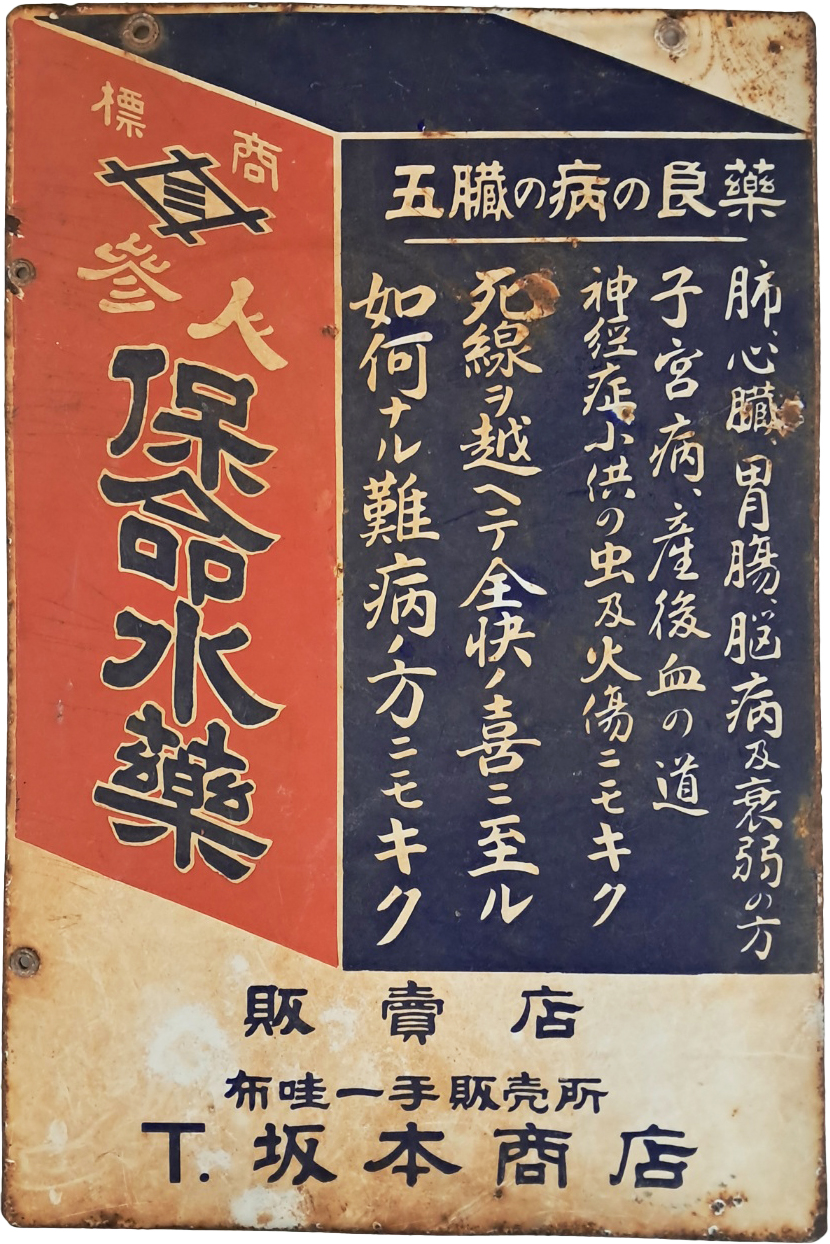 商標
眞
人参
保命水薬
五臓の病の良薬
肺、心臓、胃腸、脳病及衰弱の方
子宮病、産後血の道
神経症小供の虫及火傷ニモキク
死線ヲ越ヘテ全快ノ喜ニ至ル
如何ナル難病ノ方ニモキク
販賣店
布哇一手販売所
T. 坂本商店